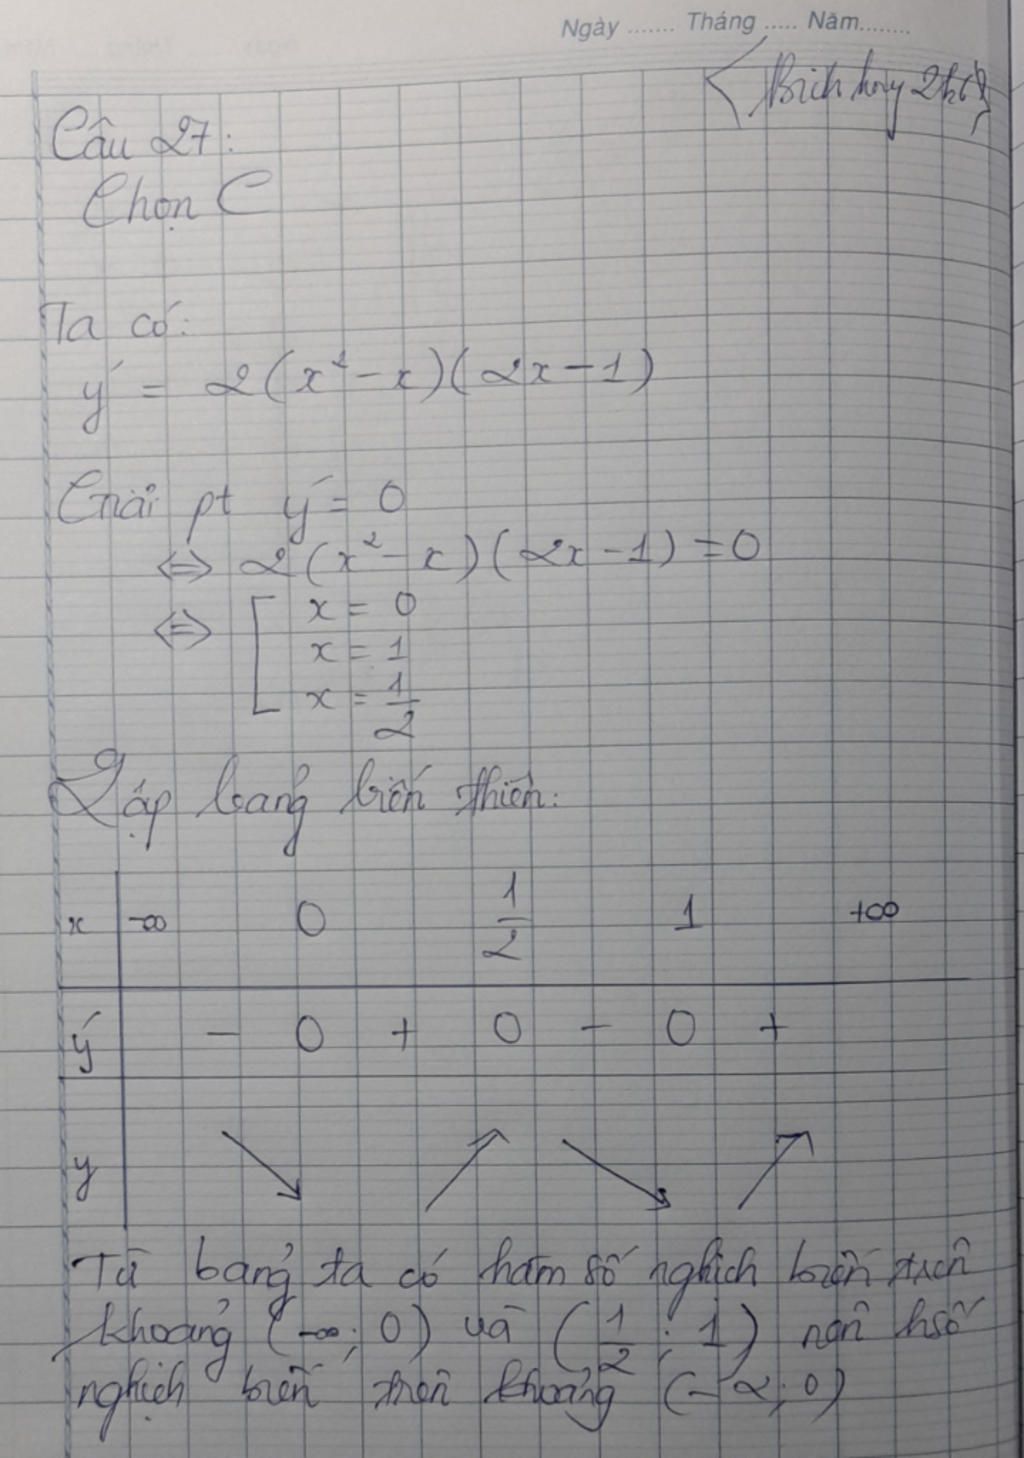 Ngày ....... Tháng ..... Năm........
Câu 27:
Chọn C
Ta có:
y' = 2(x² - x)(2x - 1)
Giải pt y' = 0
⇔ 2(x² - x)(2x - 1) = 0
⇔ [ x = 0
x = 1
x = 1/2
Lập bảng biến thiên:
x -∞ 0 1/2 1 +∞
y' - 0 + 0 - 0 +
y
Từ bảng ta có hàm số nghịch biến trên
khoảng (-∞; 0) và (1/2; 1) nên hsố
nghịch biến trên khoảng (-2; 0)